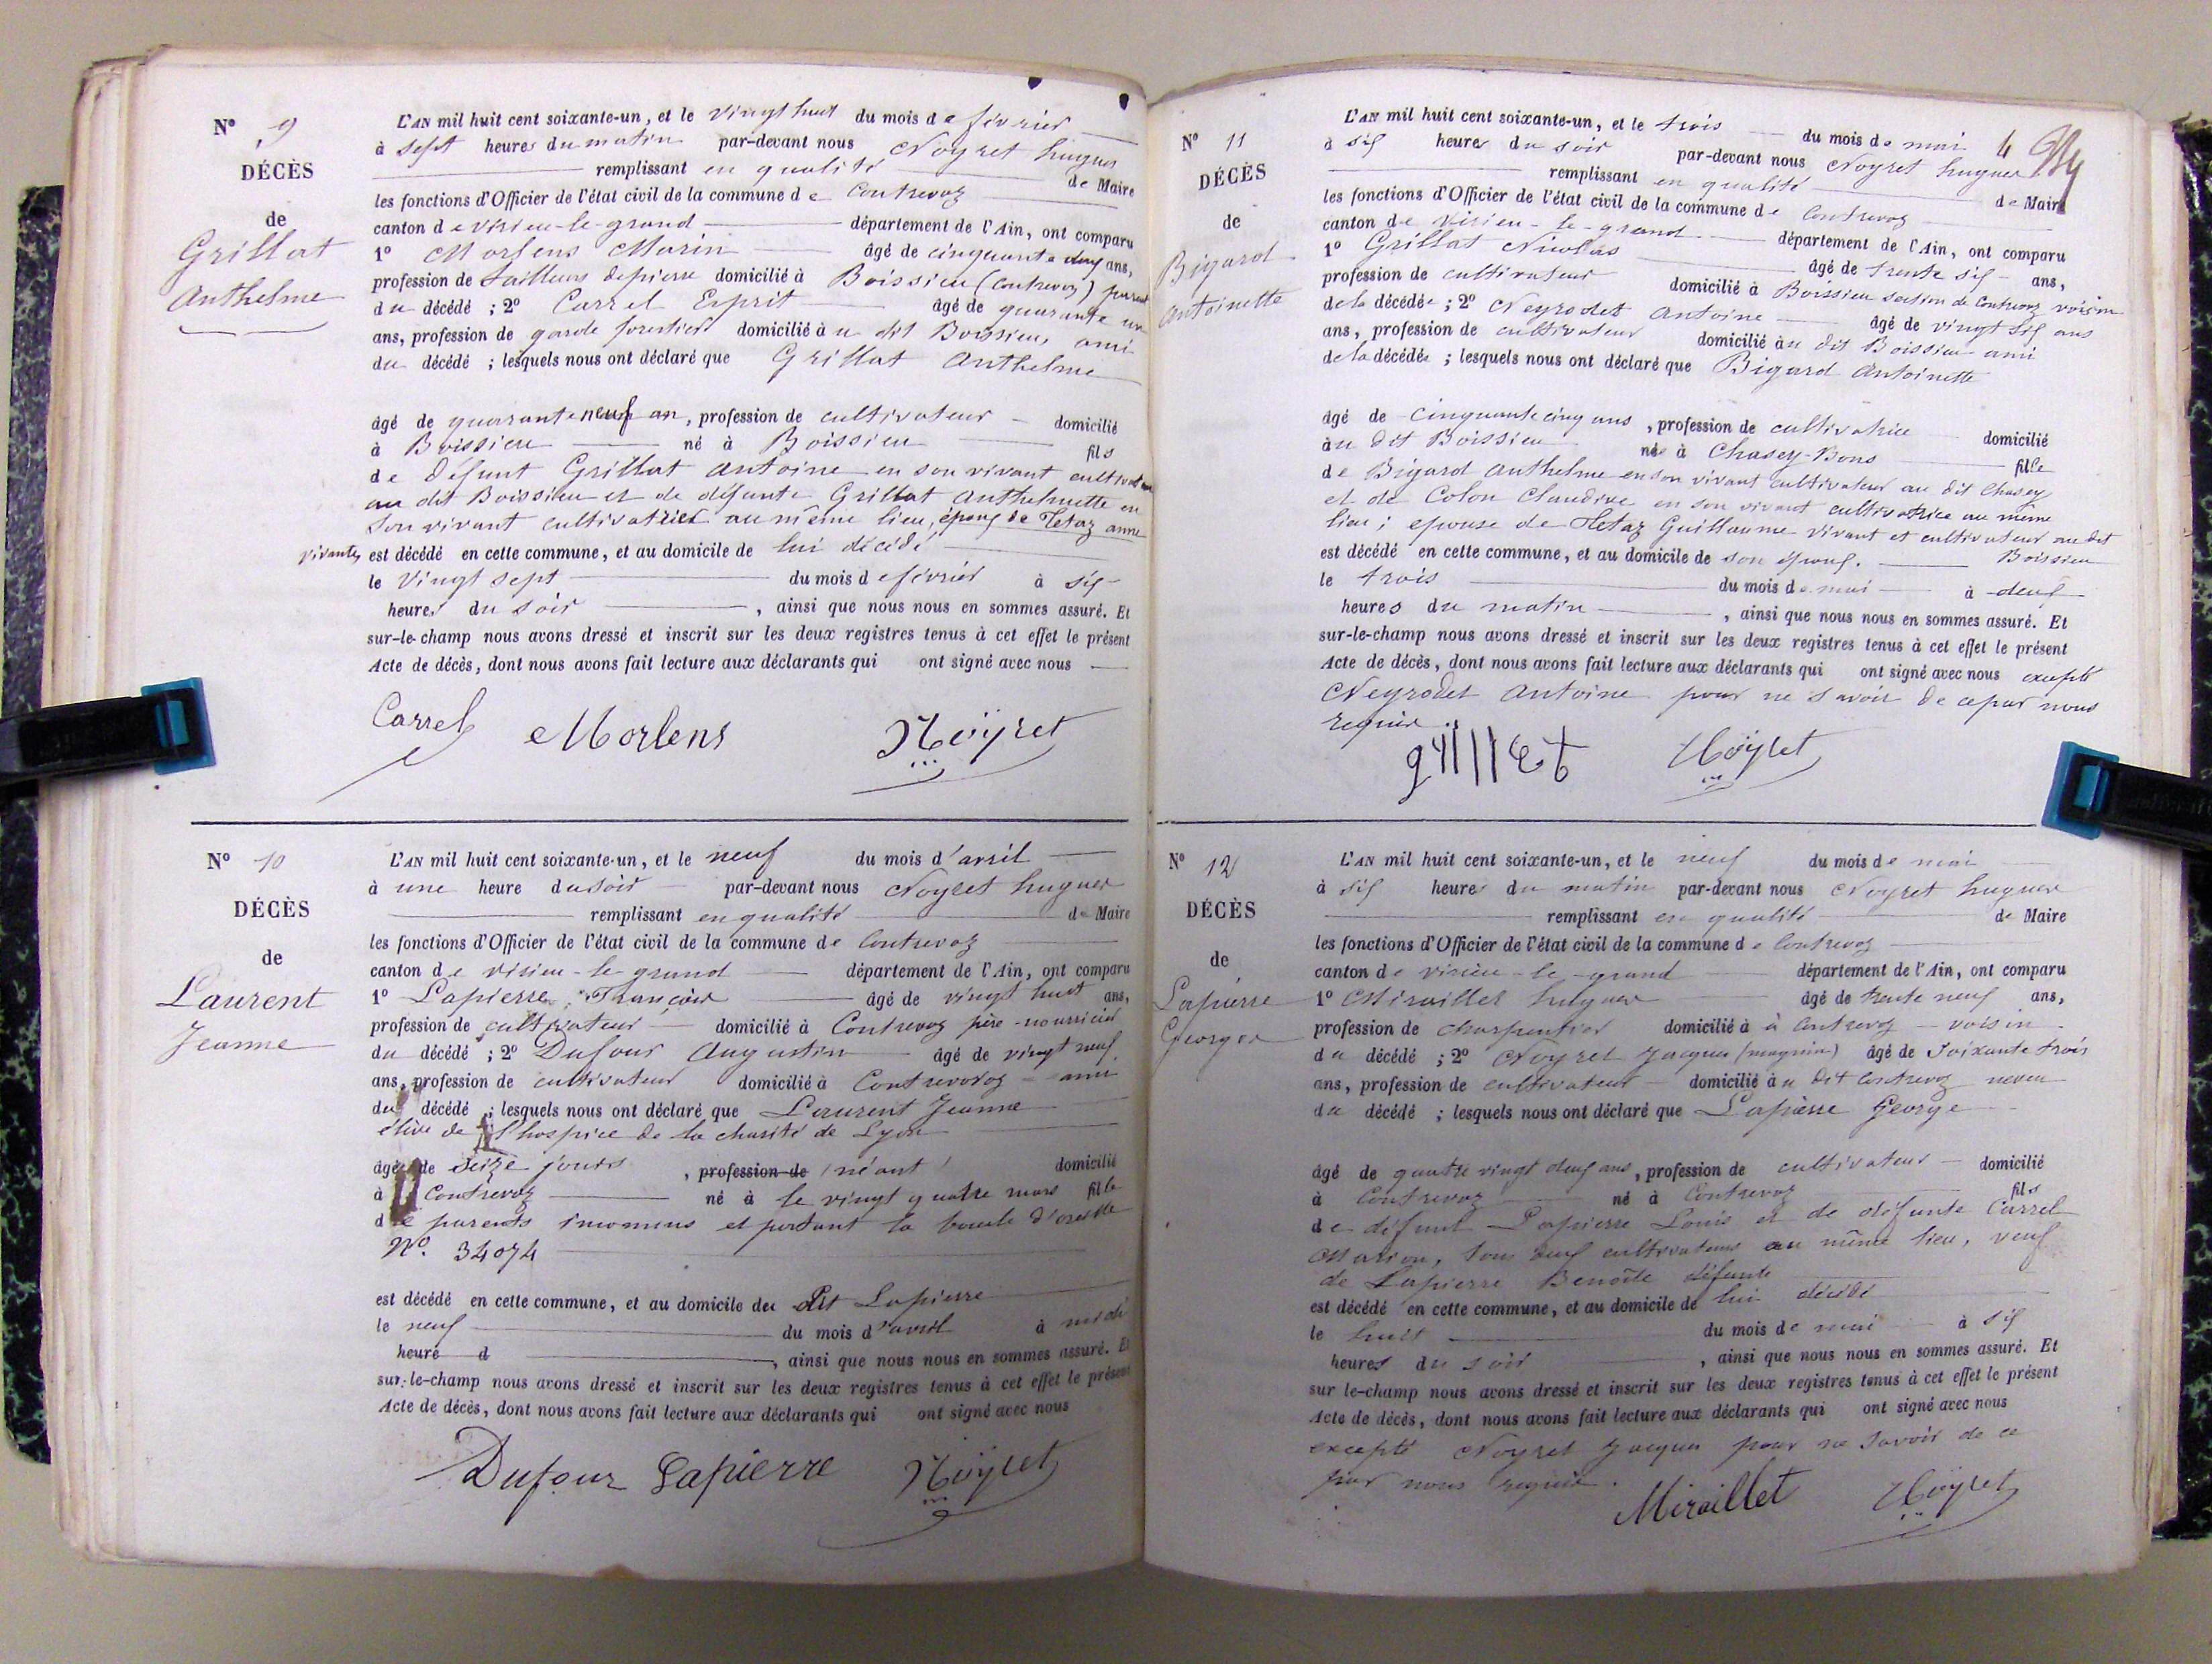 N° 9
DÉCÈS
de
Grillat
Anthelme
L'AN mil huit cent soixante-un, et le vingt huit du mois de février
à sept heures du matin par-devant nous Noyret hugues
remplissant en qualité de Maire
les fonctions d'Officier de l'état civil de la commune de Contrevoz
canton de virieu-le-grand département de l'Ain, ont comparu
1° Morlens Marin âgé de cinquante deux ans,
profession de tailleurs depierre domicilié à Boissieu (contrevoz) parent
du décédé ; 2° Carrel Esprit âgé de quarante un
ans, profession de garde forestier domicilié à u dit Boissieu, ami
du décédé ; lesquels nous ont déclaré que Grillat Anthelme
âgé de quarante neuf an, profession de cultivateur domicilié
à Boissieu né à Boissieu fils
de défunt Grillat Antoine en son vivant cultivateur
au dit Boissieu et de défunte Grillat Anthelmette en
son vivant cultivatrice au même lieu, époux de Tetaz anne
vivante, est décédé en cette commune, et au domicile de lui décédé
le vingt sept du mois de février à six
heures du soir , ainsi que nous nous en sommes assuré. Et
sur-le-champ nous avons dressé et inscrit sur les deux registres tenus à cet effet le présent
Acte de décès, dont nous avons fait lecture aux déclarants qui ont signé avec nous
Carrel Morlens Noÿret
N° 10
DÉCÈS
de
Laurent
Jeanne
L'AN mil huit cent soixante-un, et le neuf du mois d'avril
à une heure du soir par-devant nous Noyret hugues
remplissant en qualité de Maire
les fonctions d'Officier de l'état civil de la commune de Contrevoz
canton de virieu-le-grand département de l'Ain, ont comparu
1° Lapierre François âgé de vingt huit ans,
profession de cultivateur domicilié à Contrevoz père-nourricier
du décédé ; 2° Dufour Augustin âgé de vingt neuf
ans, profession de cultivateur domicilié à Contrevoroz ami
du décédé ; lesquels nous ont déclaré que Laurent Jeanne
élève de l'hospice de la charité de Lyon
âgé de seize jours , profession de (néant) domicilié
à Contrevoz né à le vingt quatre mars fille
de parents inconnus et portant la boucle d'oreille
N°. 34074
est décédé en cette commune, et au domicile du dit Lapierre
le neuf du mois d'avril à midi
heure d , ainsi que nous nous en sommes assuré. Et
sur-le-champ nous avons dressé et inscrit sur les deux registres tenus à cet effet le présent
Acte de décès, dont nous avons fait lecture aux déclarants qui ont signé avec nous
Dufour Lapierre Noÿret
4
N° 11
DÉCÈS
de
Bigard
Antoinette
L'AN mil huit cent soixante-un, et le trois du mois de mai
à six heures du soir par-devant nous Noyret hugues
remplissant en qualité de Maire
les fonctions d'Officier de l'état civil de la commune de Contrevoz
canton de virieu-le-grand département de l'Ain, ont comparu
1° Grillat Nicolas âgé de trente six ans,
profession de cultivateur domicilié à Boissieu section de Contrevoz voisin
de la décédée ; 2° Neyrodet Antoine âgé de vingt six ans
ans, profession de cultivateur domicilié àu dit Boissieu ami
de la décédée ; lesquels nous ont déclaré que Bigard Antoinette
âgé de cinquante cinq ans , profession de cultivatrice domicilié
àu dit Boissieu née à Chasey-Bons fille
de Bigard Anthelme en son vivant cultivateur au dit Chasey
et de Colon Claudine en son vivant cultivatrice au même
lieu ; epouse de Tetaz Guillaume vivant et cultivateur au dit
Boissieu
est décédé en cette commune, et au domicile de son époux.
le trois du mois de mai à deux
heures du matin , ainsi que nous nous en sommes assuré. Et
sur-le-champ nous avons dressé et inscrit sur les deux registres tenus à cet effet le présent
Acte de décès, dont nous avons fait lecture aux déclarants qui ont signé avec nous excepté
Neyrodet Antoine pour ne savoir de ce par nous
requis.
grillet Noÿret
N° 12
DÉCÈS
de
Lapierre
George
L'AN mil huit cent soixante-un, et le neuf du mois de mai
à six heures du matin par-devant nous Noyret hugues
remplissant en qualité de Maire
les fonctions d'Officier de l'état civil de la commune de Contrevoz
canton de virieu-le-grand département de l'Ain, ont comparu
1° Miraillet hugues âgé de trente neuf ans,
profession de charpentier domicilié à à Contrevoz voisin
du décédé ; 2° Noyret Jacques (magnin) âgé de soixante trois
ans, profession de cultivateur domicilié àu dit Contrevoz neveu
du décédé ; lesquels nous ont déclaré que Lapierre George
âgé de quatre vingt deux ans, profession de cultivateur domicilié
à Contrevoz né à Contrevoz fils
de défunt Lapierre Louis et de défunte Carrel
Marion, tous deux cultivateurs au même lieu, veuf
de Lapierre Benoîte défunte
est décédé en cette commune, et au domicile de lui décédé
le huit du mois de mai à six
heures du soir , ainsi que nous nous en sommes assuré. Et
sur le-champ nous avons dressé et inscrit sur les deux registres tenus à cet effet le présent
Acte de décès, dont nous avons fait lecture aux déclarants qui ont signé avec nous
excepté Noyret Jacques pour ne savoir de ce
par nous requis.
Miraillet Noÿret